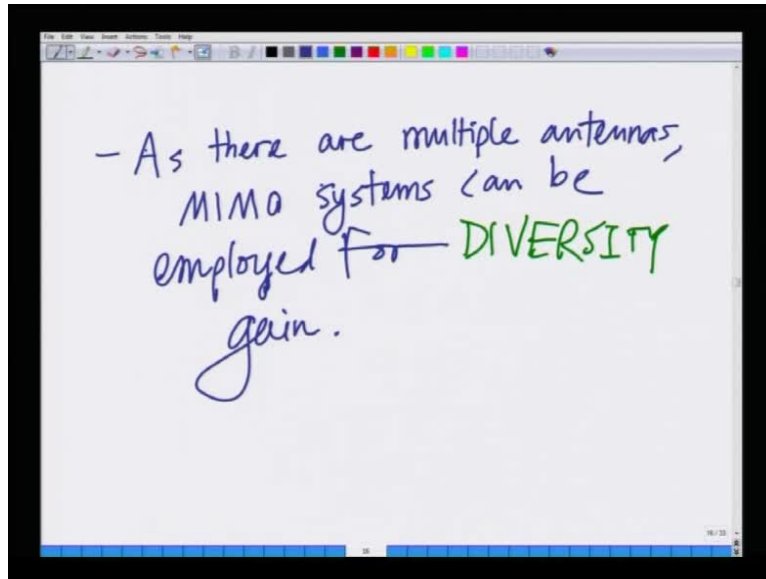 File Edit View Insert Actions Tools Help
- As there are multiple antennas,
MIMO systems can be
employed for DIVERSITY
gain.
16/33
16